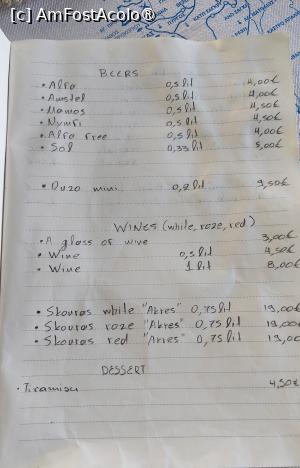 [c] AmFostAcolo®
BEERS
• Alfa 0,5 lit 4,00€
• Amstel 0,5 lit 4,00€
• Mamos 0,5 lit 4,50€
• Nymfi 0,5 lit 4,50€
• Alfa free 0,5 lit 4,00€
• Sol 0,33 lit 5,00€
• Ouzo mini 0,2 lit 9,50€
WINES (white, roze, red)
• A glass of wine 3,00€
• Wine 0,5 lit 4,50€
• Wine 1 lit 8,00€
• Skouras white "Akres" 0,75 lit 19,00€
• Skouras roze "Akres" 0,75 lit 19,00
• Skouras red "Akres" 0,75 lit 19,00
DESSERT
• Tiramisu 4,50€